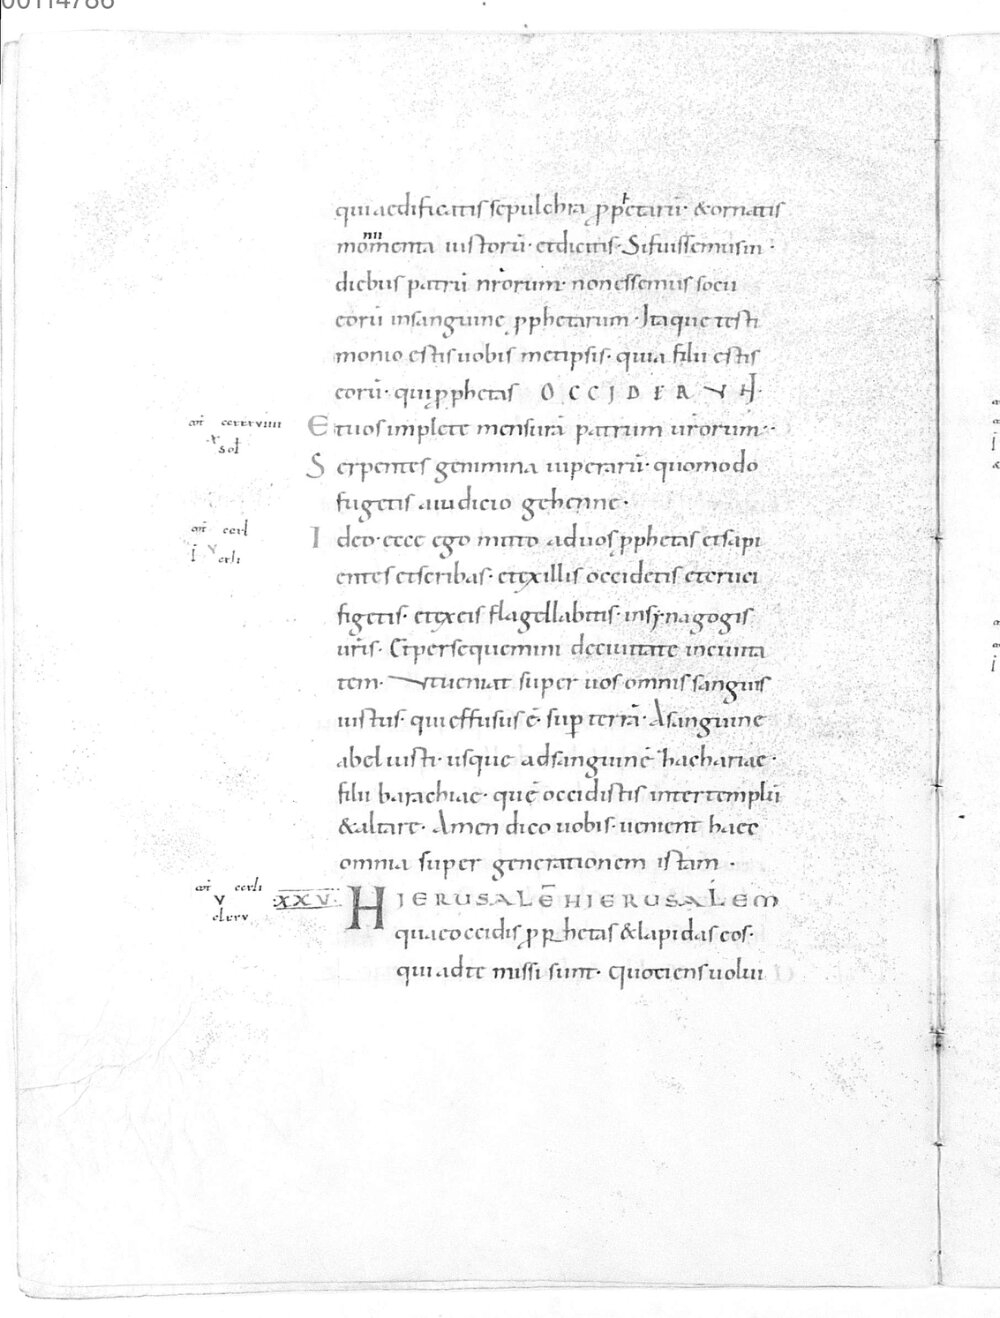 00114786
qui aedificatis sepulchra ꝓphetarū· & ornatis
monumenta iustorū· et dicitis· Si fuissemus in·
diebus patrū nrorum· non essemus socii
eorū in sanguine ꝓphetarum· Itaque testi
monio estis uobis metipsis· quia filii estis
eorū· qui ꝓphetas OCCIDERUNT·
Et uos implete mensurā patrum urorum··
Serpentes genimina uiperarū· quomodo
fugetis a iudicio gehenne·
Ideo· ecce ego mitto ad uos ꝓphetas et sapi
entes et scribas· et ex illis occidetis et cruci
figetis· et ex eis flagellabitis· in synagogis
uris· Et persequemini de ciuitate in ciuita
tem· Ut ueniat super uos omnis sanguis
iustus· qui effusus ē· sup terrā· A sanguine
abel iusti· usque ad sanguinē zachariae·
filii barachiae· quē occidistis inter templū
& altare· Amen dico uobis· uenient haec
omnia super generationem istam·
XXV· HIERUSALĒ HIERUSALEM
quae occidis ꝓphetas & lapidas eos·
qui ad te missi sunt· Quotiens uolui